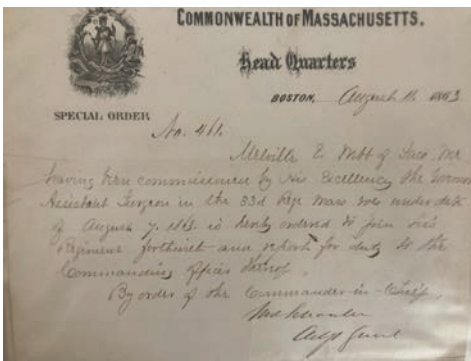 COMMONWEALTH OF MASSACHUSETTS.
Head Quarters
BOSTON, August 11. 1863
SPECIAL ORDER
No. 461.
Melville E. Webb of Saco, Me
having been commissioned by His Excellency the Governor
Assistant Surgeon in the 33d Regt Mass under date
of August 7. 1863. is hereby ordered to join his
Regiment forthwith and report for duty to the
Commanding Officer thereof.
By order of the Commander-in-Chief,
Adjt Genl